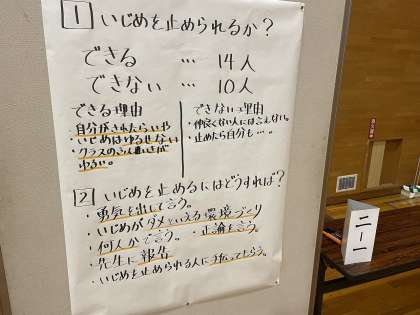 1 いじめを止められるか？
できる … 14人
できない … 10人
できる理由
・自分がされたらいや
・いじめはゆるせない
・クラスの
ゆるい。
できない理由
・仲良くない人には言えない。
・止めたら自分も…。
2 いじめを止めるにはどうすれば？
・勇気を出して言う。
・いじめがダメといえる環境づくり
・何人かで言う。 ・正論を言う。
・先生に報告
・いじめを止められる人に手伝ってもらう。
二－一